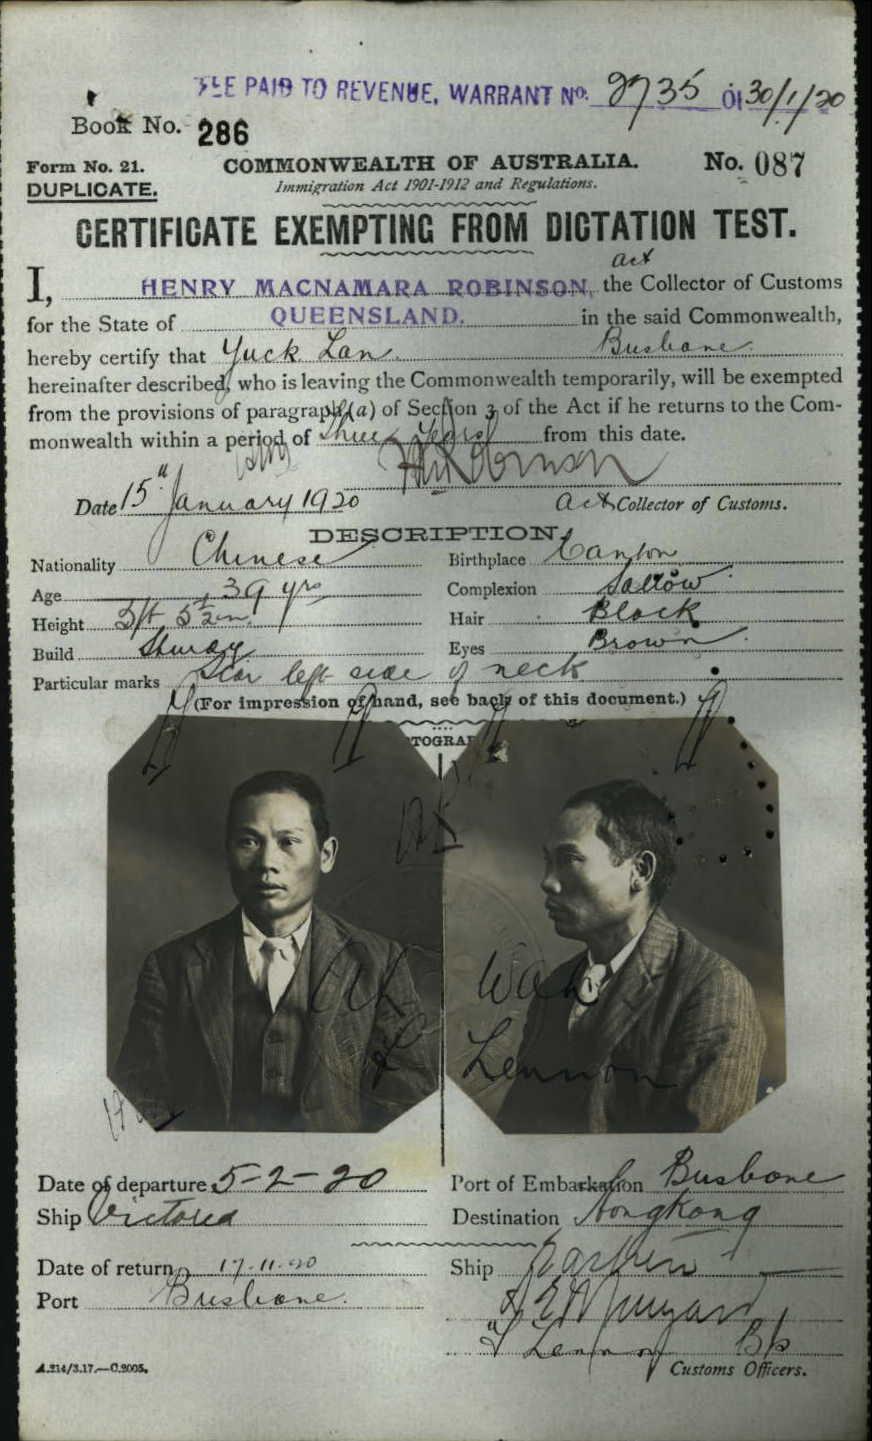 FEE PAID TO REVENUE, WARRANT No. 2735 of 30/1/20
Book No. 286
Form No. 21. COMMONWEALTH OF AUSTRALIA. No. 087
DUPLICATE. Immigration Act 1901-1912 and Regulations.
CERTIFICATE EXEMPTING FROM DICTATION TEST.
act
I, HENRY MACNAMARA ROBINSON, the Collector of Customs
for the State of QUEENSLAND. in the said Commonwealth,
hereby certify that Yuck Lan. Brisbane.
hereinafter described, who is leaving the Commonwealth temporarily, will be exempted
from the provisions of paragraph (a) of Section 3 of the Act if he returns to the Com-
monwealth within a period of Three Years from this date.
Date 15" January 1920 Act Collector of Customs.
DESCRIPTION.
Nationality Chinese Birthplace Canton
Age 39 yrs Complexion Sallow
Height 5ft 5½in. Hair Black
Build Sturdy Eyes Brown
Particular marks Scar left side of neck
(For impression of hand, see back of this document.)
TOGRAP
Ah Wah
L Lennon
Date of departure 5-2-20 Port of Embarkation Brisbane
Ship Victoria Destination Hongkong
Date of return 17.11.20 Ship
Port Brisbane.
Lennon
Customs Officers.
A.214/3.17.—C.2005.